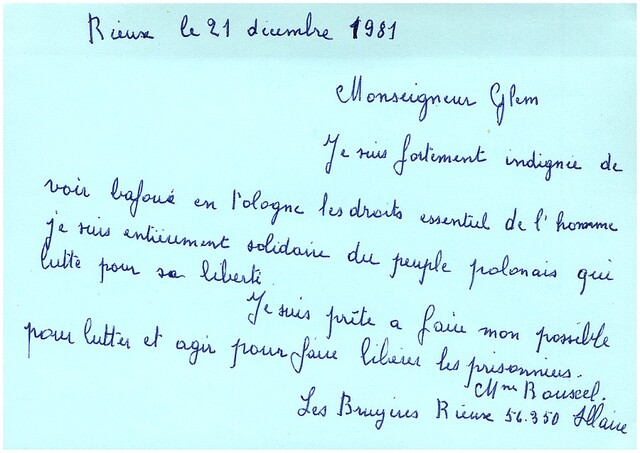 Rieux le 21 décembre 1981
Monseigneur Glem
Je suis fortement indignée de
voir bafoué en Pologne les droits essentiel de l'homme
je suis entièrement solidaire du peuple polonais qui
lutte pour sa liberté
Je suis prête a faire mon possible
pour lutter et agir pour faire libérer les prisonniers.
Mme Rouxel.
Les Bruyères Rieux 56.350 Allaire